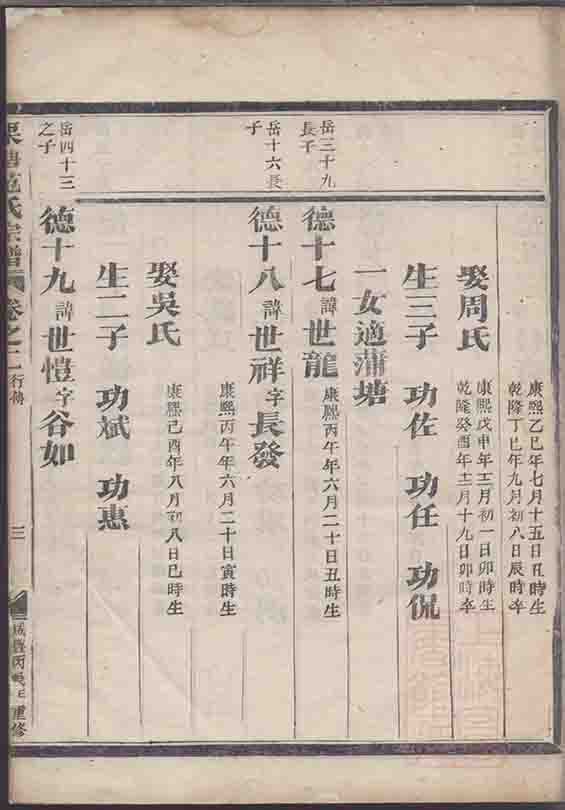 康熙乙巳年七月十五日丑時生
乾隆丁巳年九月初八日辰時卒
娶周氏
康熙戊申年三月初一日卯時生
乾隆癸酉年三月十九日卯時卒
生三子 功佐 功任 功侃
一女適蒲塘
岳三十九
長子
德十七諱世龍
康熙丙午年六月二十日丑時生
岳十六長
子
德十八諱世祥字長發
康熙丙午年六月二十日寅時生
娶吳氏
康熙己酉年八月初八日巳時生
生二子 功斌 功惠
岳四十三
之子
德十九諱世愷字谷如
范氏宗譜 卷之二 行傳 三 咸豐丙辰 重修